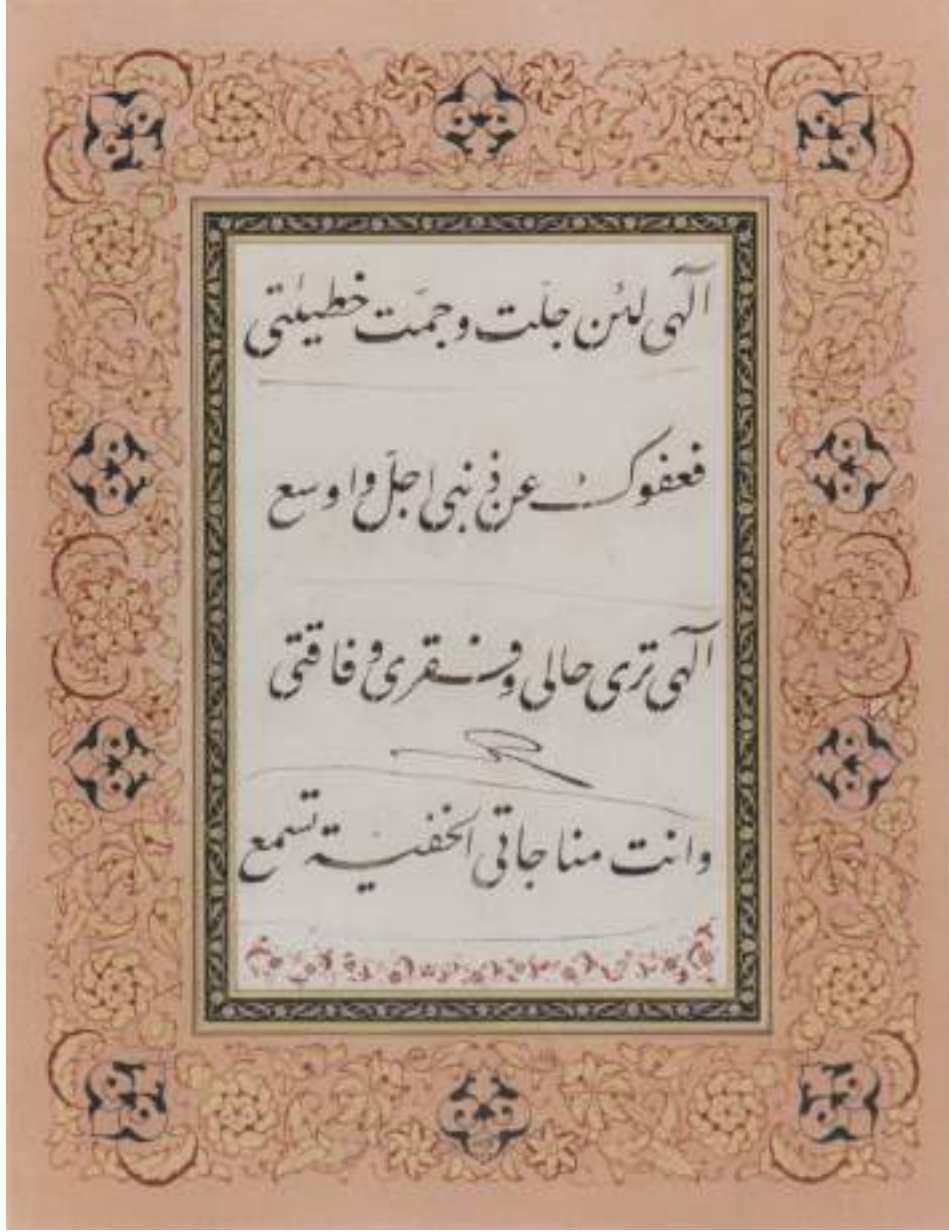 الٓهی لئن جلت وجمّت خطیئتی
فعفوک عن ذنبی اجلّ واوسع
الٓهی تری حالی وفقری وفاقتی
وانت مناجاتی الخفیة تسمع